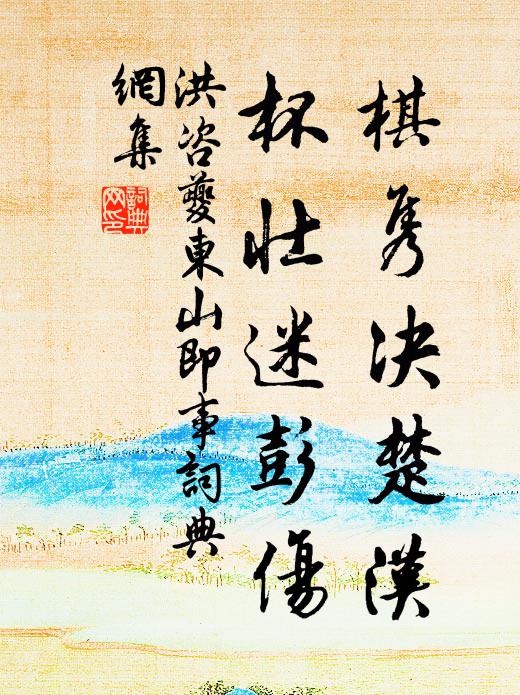 棋隽决楚漢
杯壮迷彭傷
洪咨夔東山即事詞典
網集
詞典網印